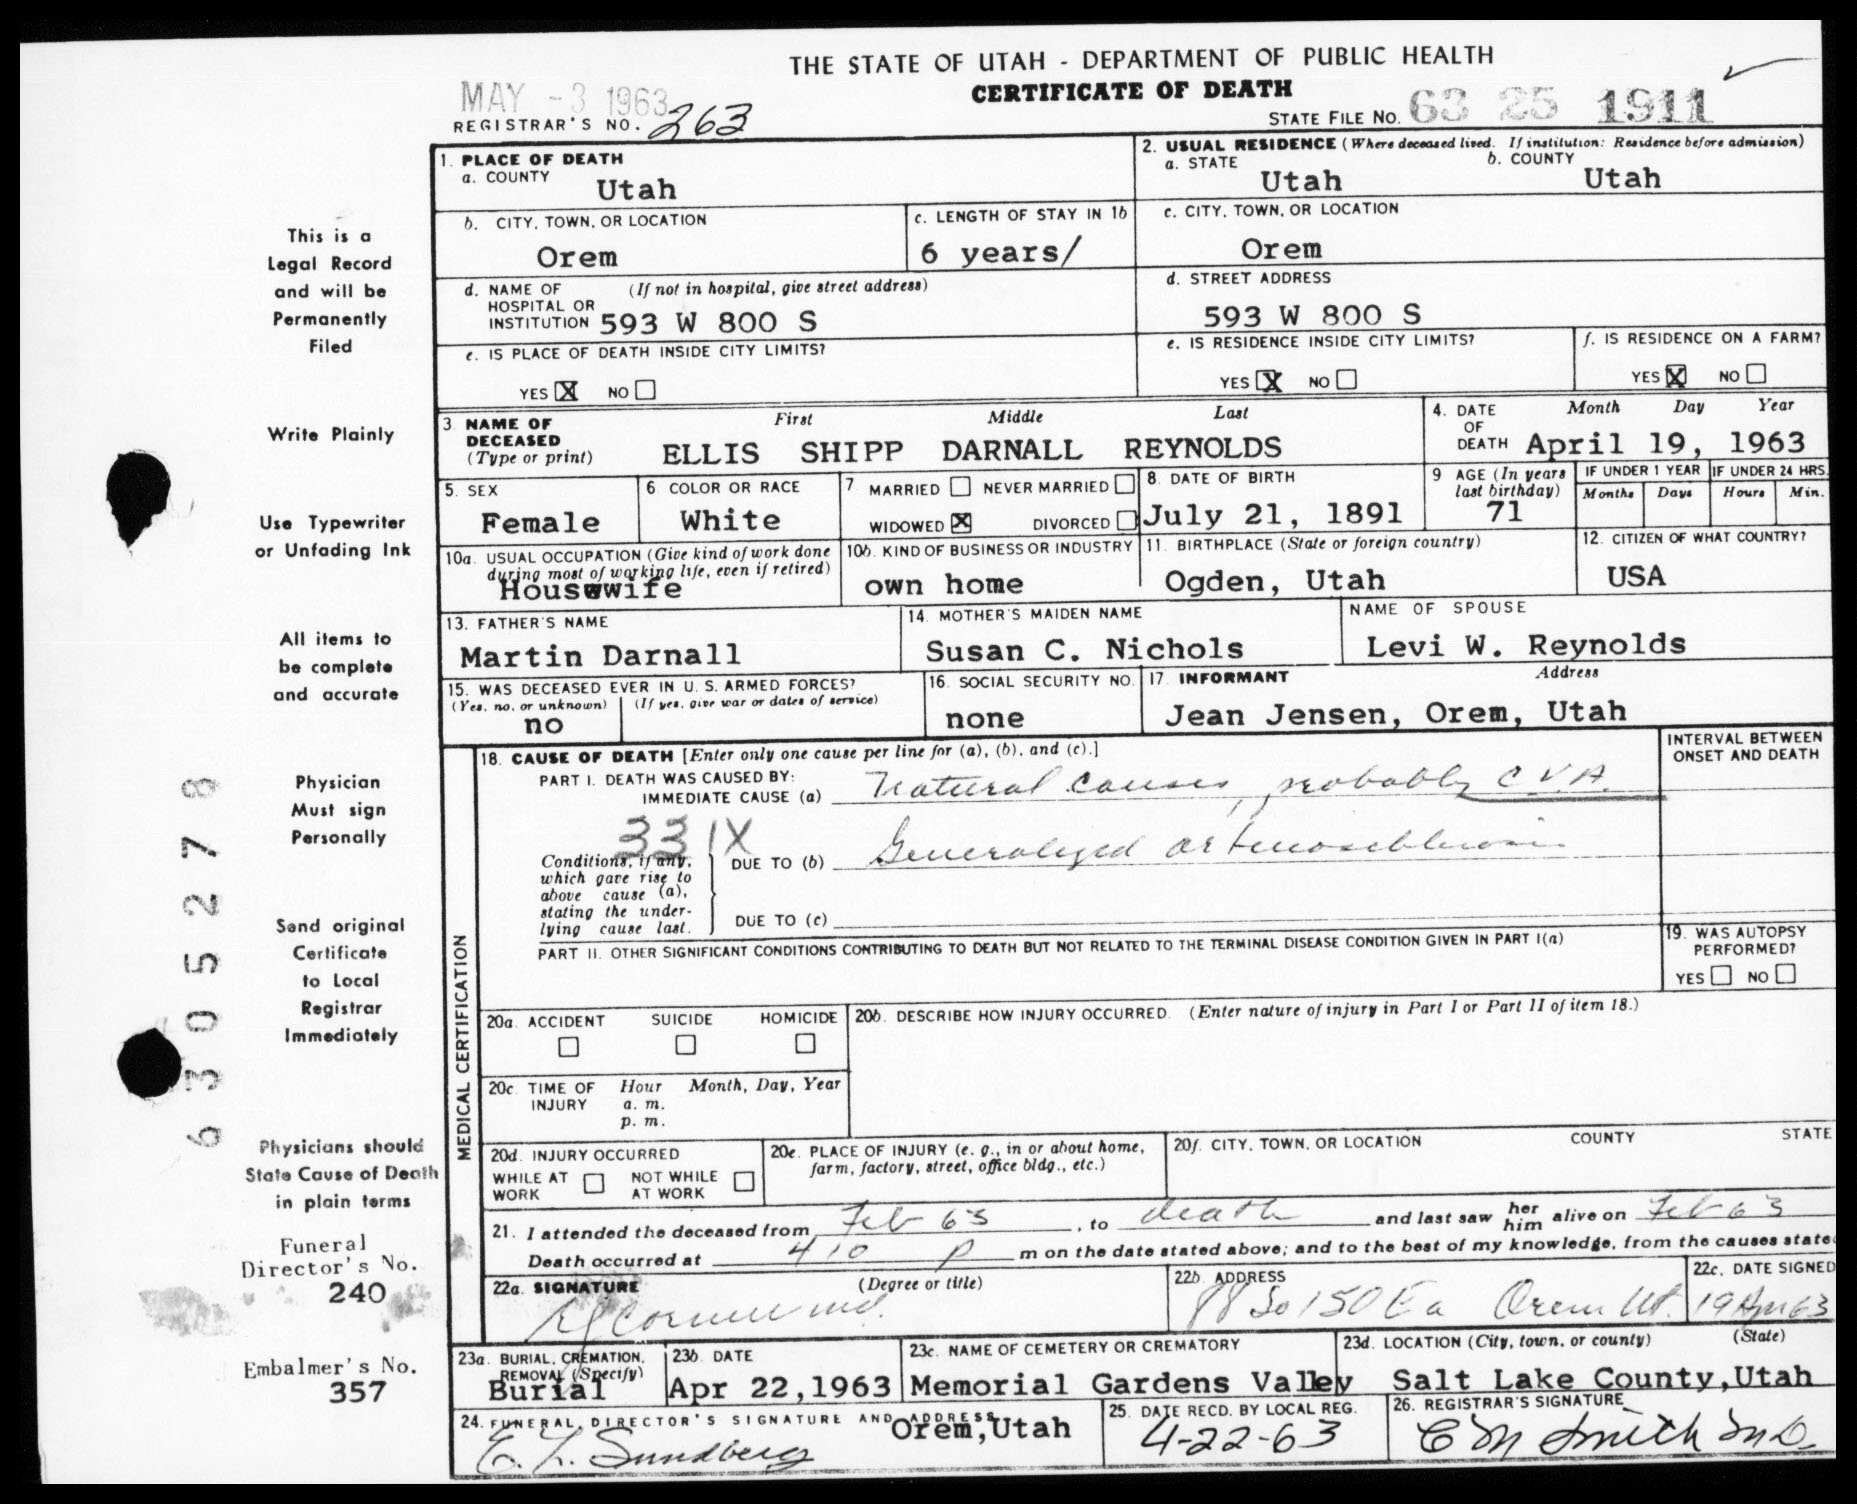 THE STATE OF UTAH - DEPARTMENT OF PUBLIC HEALTH
CERTIFICATE OF DEATH
MAY -3 1963
REGISTRAR'S NO. 263
STATE FILE NO. 63 25 1911
1. PLACE OF DEATH
a. COUNTY Utah
2. USUAL RESIDENCE (Where deceased lived. If institution: Residence before admission)
a. STATE Utah b. COUNTY Utah
b. CITY, TOWN, OR LOCATION Orem
c. LENGTH OF STAY IN 1b 6 years/
c. CITY, TOWN, OR LOCATION Orem
d. NAME OF HOSPITAL OR INSTITUTION (If not in hospital, give street address) 593 W 800 S
d. STREET ADDRESS 593 W 800 S
e. IS PLACE OF DEATH INSIDE CITY LIMITS?
YES X NO
e. IS RESIDENCE INSIDE CITY LIMITS?
YES X NO
f. IS RESIDENCE ON A FARM?
YES X NO
3. NAME OF DECEASED (Type or print)
First Middle Last
ELLIS SHIPP DARNALL REYNOLDS
4. DATE OF DEATH Month Day Year
April 19, 1963
5. SEX Female
6 COLOR OR RACE White
7 MARRIED NEVER MARRIED
WIDOWED X DIVORCED
8. DATE OF BIRTH July 21, 1891
9 AGE (In years last birthday) 71
IF UNDER 1 YEAR Months Days
IF UNDER 24 HRS. Hours Min.
10a. USUAL OCCUPATION (Give kind of work done during most of working life, even if retired)
Housewwife
10b. KIND OF BUSINESS OR INDUSTRY own home
11. BIRTHPLACE (State or foreign country) Ogden, Utah
12. CITIZEN OF WHAT COUNTRY? USA
13. FATHER'S NAME Martin Darnall
14. MOTHER'S MAIDEN NAME Susan C. Nichols
NAME OF SPOUSE Levi W. Reynolds
15. WAS DECEASED EVER IN U. S. ARMED FORCES?
(Yes, no, or unknown) (If yes, give war or dates of service)
no
16. SOCIAL SECURITY NO. none
17. INFORMANT Address
Jean Jensen, Orem, Utah
MEDICAL CERTIFICATION
18. CAUSE OF DEATH [Enter only one cause per line for (a), (b), and (c).]
INTERVAL BETWEEN ONSET AND DEATH
PART I. DEATH WAS CAUSED BY:
IMMEDIATE CAUSE (a) Natural Causes, probably C.V.A.
331X
Conditions, if any, which gave rise to above cause (a), stating the underlying cause last.
DUE TO (b) Generalized arteriosclerosis
DUE TO (c)
PART II. OTHER SIGNIFICANT CONDITIONS CONTRIBUTING TO DEATH BUT NOT RELATED TO THE TERMINAL DISEASE CONDITION GIVEN IN PART I(a)
19. WAS AUTOPSY PERFORMED?
YES NO
20a. ACCIDENT SUICIDE HOMICIDE
20b. DESCRIBE HOW INJURY OCCURRED. (Enter nature of injury in Part I or Part II of item 18.)
20c. TIME OF INJURY Hour Month, Day, Year
a. m.
p. m.
20d. INJURY OCCURRED
WHILE AT WORK NOT WHILE AT WORK
20e. PLACE OF INJURY (e. g., in or about home, farm, factory, street, office bldg., etc.)
20f. CITY, TOWN, OR LOCATION COUNTY STATE
21. I attended the deceased from Feb 63, to death and last saw her him alive on Feb 63
Death occurred at 410 P m on the date stated above; and to the best of my knowledge, from the causes state
22a. SIGNATURE (Degree or title)
md.
22b. ADDRESS 88 So 150 Ea Orem Ut.
22c. DATE SIGNED 19 Apr 63
23a. BURIAL, CREMATION, REMOVAL (Specify) Burial
23b. DATE Apr 22,1963
23c. NAME OF CEMETERY OR CREMATORY Memorial Gardens Valley
23d. LOCATION (City, town, or county) (State)
Salt Lake County,Utah
24. FUNERAL DIRECTOR'S SIGNATURE AND ADDRESS Orem,Utah
E. L. Sundberg
25. DATE RECD. BY LOCAL REG. 4-22-63
26. REGISTRAR'S SIGNATURE C M Smith M.D.
This is a
Legal Record
and will be
Permanently
Filed
Write Plainly
Use Typewriter
or Unfading Ink
All items to
be complete
and accurate
Physician
Must sign
Personally
Send original
Certificate
to Local
Registrar
Immediately
Physicians should
State Cause of Death
in plain terms
Funeral
Director's No.
240
Embalmer's No.
357
6305278